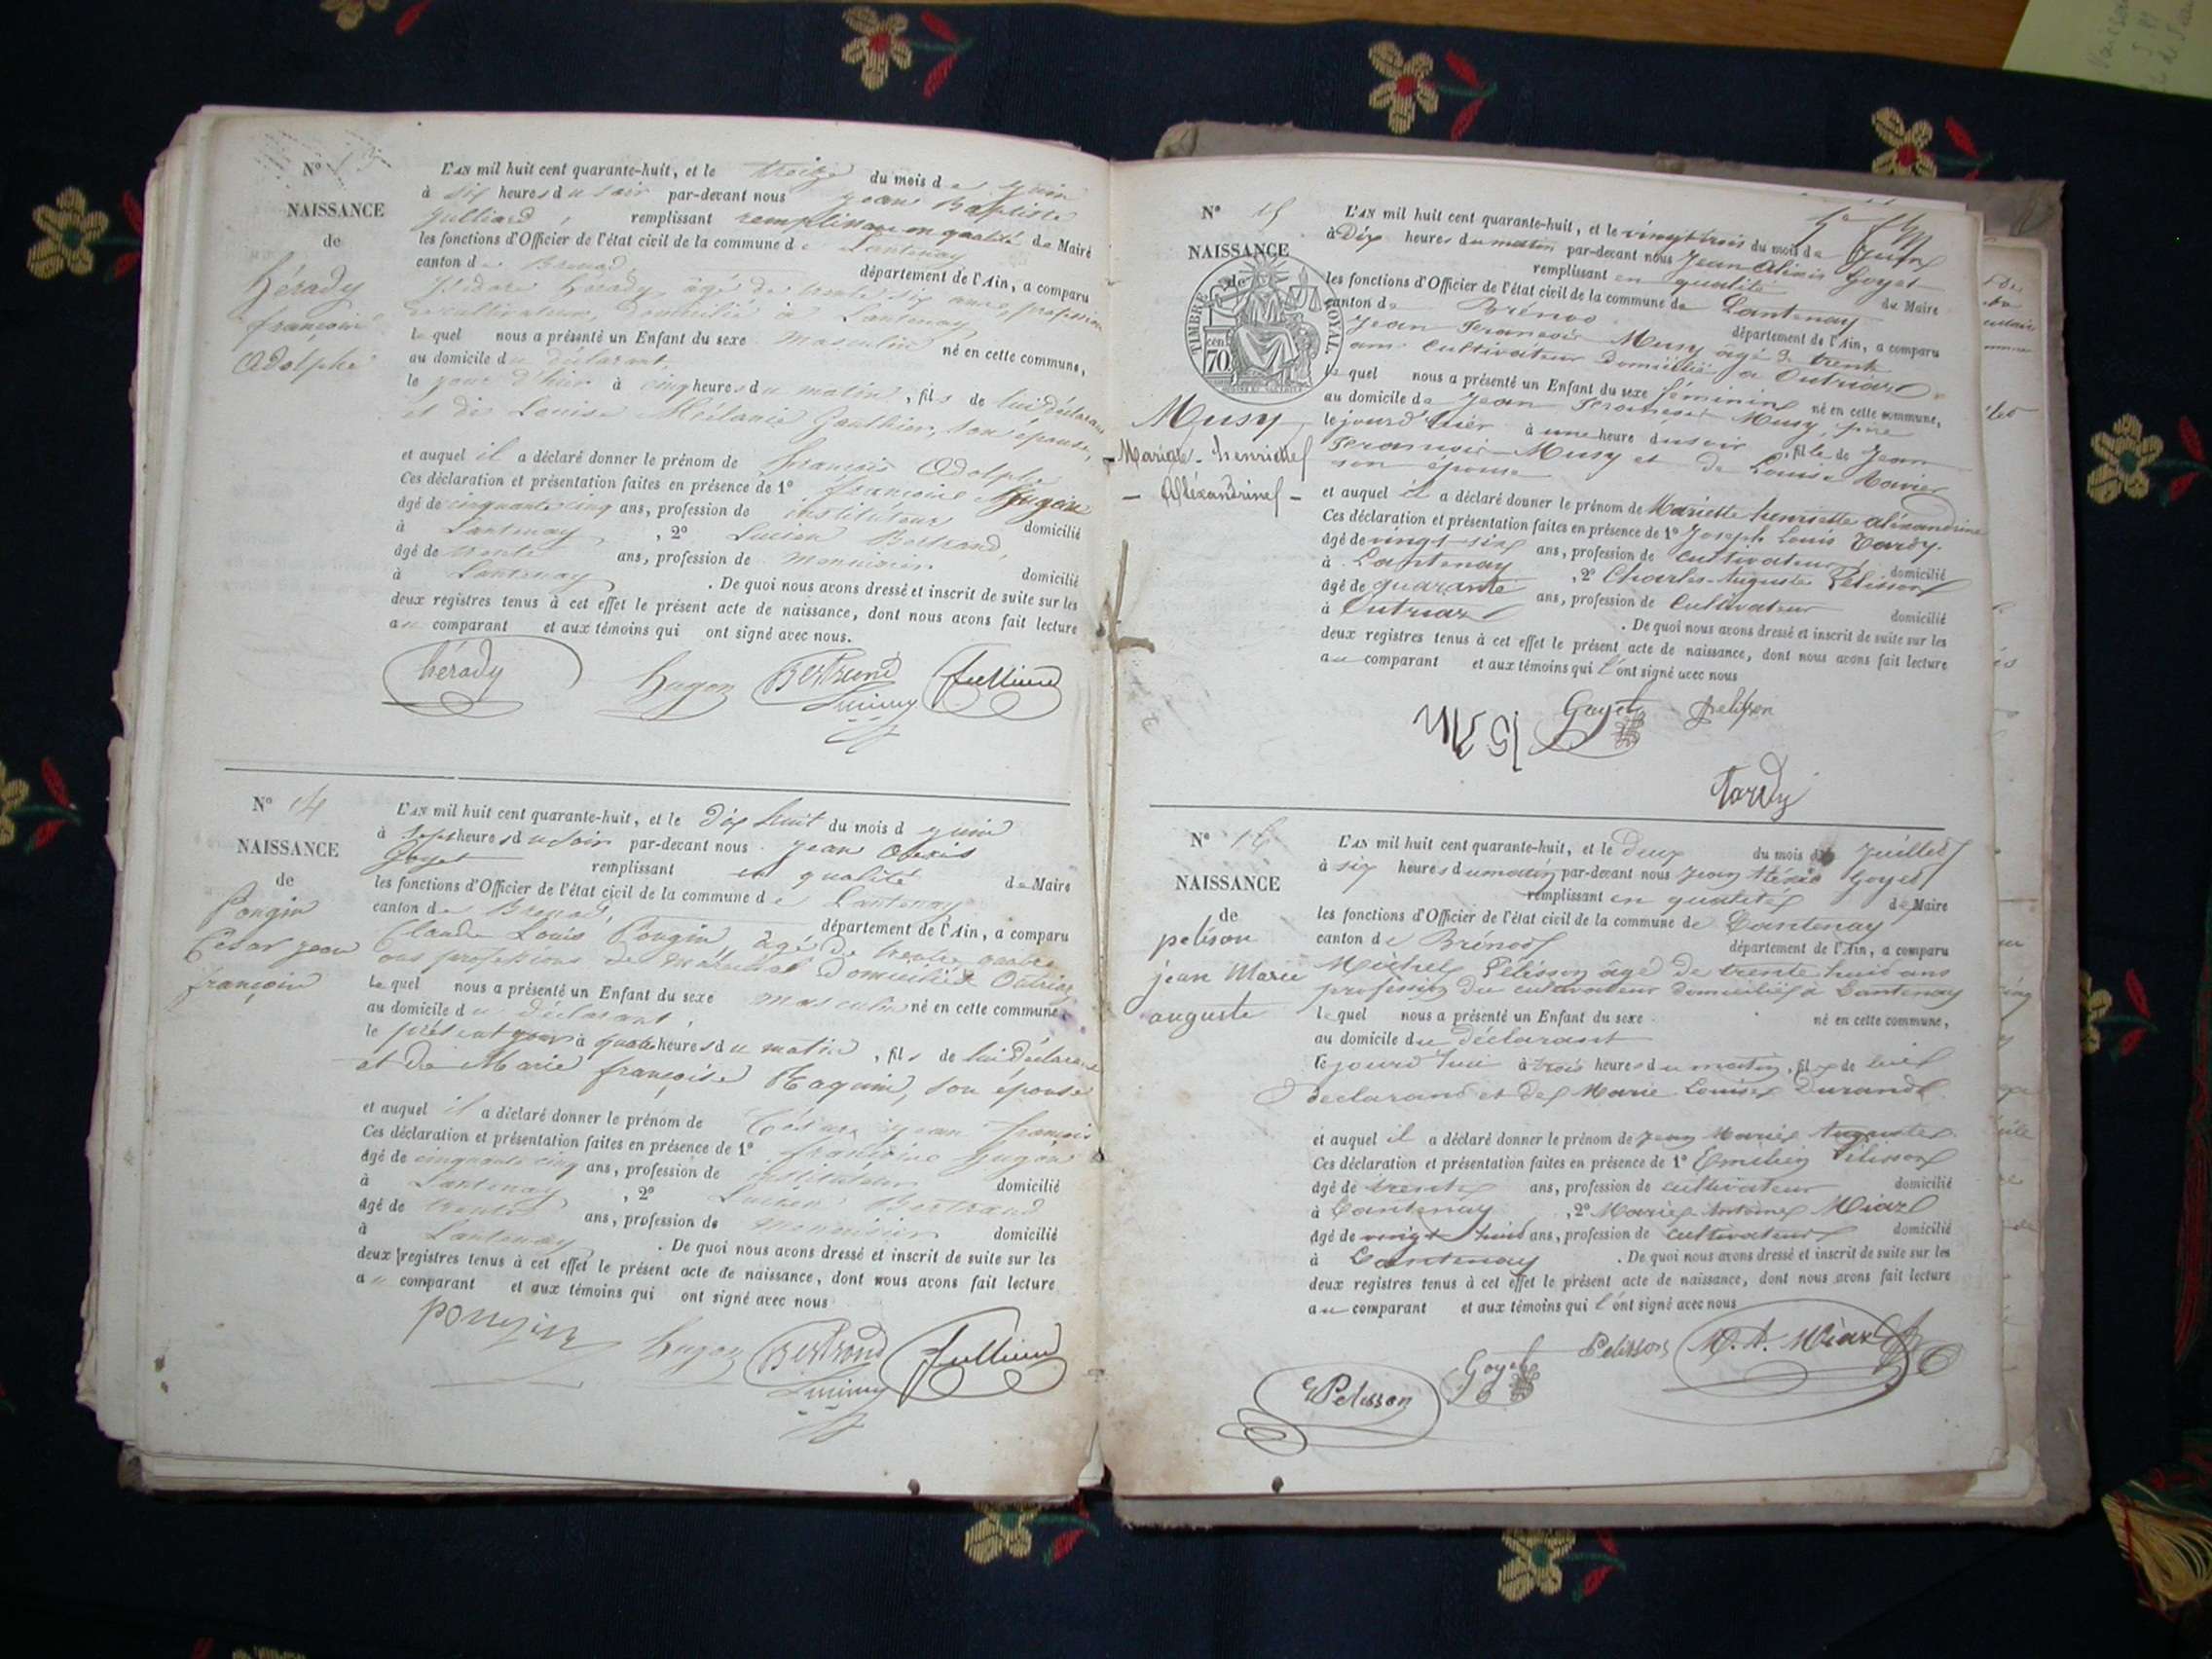 N° 13
NAISSANCE
de
hérady
françois
adolphe
L'AN mil huit cent quarante-huit, et le treize du mois de juin
à six heures du soir par-devant nous jean Baptiste
Julliard remplissant remplissant en qualité de Maire
les fonctions d'Officier de l'état civil de la commune de Lantenay
canton de Brenod département de l'Ain, a comparu
hérady âgé de trente six ans, profession
de cultivateur, domicilié à Lantenay
lequel nous a présenté un Enfant du sexe masculin né en cette commune,
au domicile du déclarant,
le jour d'hier à cinq heures du matin, fils de lui déclarant
et de Louise Mélanie Gauthier, son épouse,
et auquel il a déclaré donner le prénom de françois adolphe
Ces déclaration et présentation faites en présence de 1° françois hugon
âgé de cinquante cinq ans, profession de instituteur domicilié
à Lantenay, 2° Lucien Bertrand
âgé de trente ans, profession de menuisier domicilié
à Lantenay. De quoi nous avons dressé et inscrit de suite sur les
deux registres tenus à cet effet le présent acte de naissance, dont nous avons fait lecture
au comparant et aux témoins qui ont signé avec nous.
hérady hugon Bertrand Jullien
N° 14
NAISSANCE
de
Pongin
César jean
françois
L'AN mil huit cent quarante-huit, et le dix huit du mois d juin
à sept heures du soir par-devant nous jean alexis
goyet remplissant en qualité de Maire
les fonctions d'Officier de l'état civil de la commune de Lantenay
canton de Brenod, département de l'Ain, a comparu
Claude Louis Pongin, âgé de trente quatre
ans profession de maréchal domicilié à Outriaz
lequel nous a présenté un Enfant du sexe masculin né en cette commune,
au domicile du déclarant,
le présent jour à quatre heures du matin, fils de lui déclarant
et de Marie françoise Maquin, son épouse
et auquel il a déclaré donner le prénom de César jean françois
Ces déclaration et présentation faites en présence de 1° françois hugon
âgé de cinquante cinq ans, profession de instituteur domicilié
à Lantenay, 2° Lucien Bertrand
âgé de trente ans, profession de menuisier domicilié
à Lantenay. De quoi nous avons dressé et inscrit de suite sur les
deux registres tenus à cet effet le présent acte de naissance, dont nous avons fait lecture
au comparant et aux témoins qui ont signé avec nous
pongin hugon Bertrand Jullien
N° 15
NAISSANCE
de
TIMBRE ROYAL
70 cen
Musy
Mariae - henriette
- Aléxandrine -
L'AN mil huit cent quarante-huit, et le vingt trois du mois de Juin
à Dix heures du matin par-devant nous Jean Aléxis Goyet
remplissant en qualité du Maire
les fonctions d'Officier de l'état civil de la commune de Lantenay
canton de Brénod département de l'Ain, a comparu
Jean François Musy âgé de trente
ans cultivateur domicilié à Outriaz
lequel nous a présenté un Enfant du sexe féminin né en cette commune,
au domicile de Jean François Musy, père
le jourd'hier à une heure du soir, fille de Jean
François Musy et de Louise
son épouse
et auquel il a déclaré donner le prénom de Mariette henriette aléxandrine
Ces déclaration et présentation faites en présence de 1° Joseph Louis Tardy
âgé de vingt-six ans, profession de cultivateur domicilié
à Lantenay, 2° Charles-Auguste Pélisson
âgé de quarante ans, profession de cultivateur domicilié
à Outriaz. De quoi nous avons dressé et inscrit de suite sur les
deux registres tenus à cet effet le présent acte de naissance, dont nous avons fait lecture
au comparant et aux témoins qui l'ont signé avec nous
Goyet pelisson
Tardy
N° 16
NAISSANCE
de
pelison
jean Marie
auguste
L'AN mil huit cent quarante-huit, et le deux du mois de Juillet
à six heures du matin par-devant nous Jean Aléxis Goyet
remplissant en qualité de Maire
les fonctions d'Officier de l'état civil de la commune de Lantenay
canton de Brénod département de l'Ain, a comparu
Michel Pélisson âgé de trente huit ans
profession de cultivateur domicilié à Lantenay
lequel nous a présenté un Enfant du sexe né en cette commune,
au domicile du déclarant
le jourd'hui à trois heures du matin, fils de lui
déclarant et de Marie Louise Durand
et auquel il a déclaré donner le prénom de Jean Marie Auguste
Ces déclaration et présentation faites en présence de 1° Emelien Pélisson
âgé de trente ans, profession de cultivateur domicilié
à Lantenay, 2° Marie Antoine Miaz
âgé de vingt huit ans, profession de cultivateur domicilié
à Lantenay. De quoi nous avons dressé et inscrit de suite sur les
deux registres tenus à cet effet le présent acte de naissance, dont nous avons fait lecture
au comparant et aux témoins qui l'ont signé avec nous
Pelisson M. A. Miaz
E Pelisson Goyet